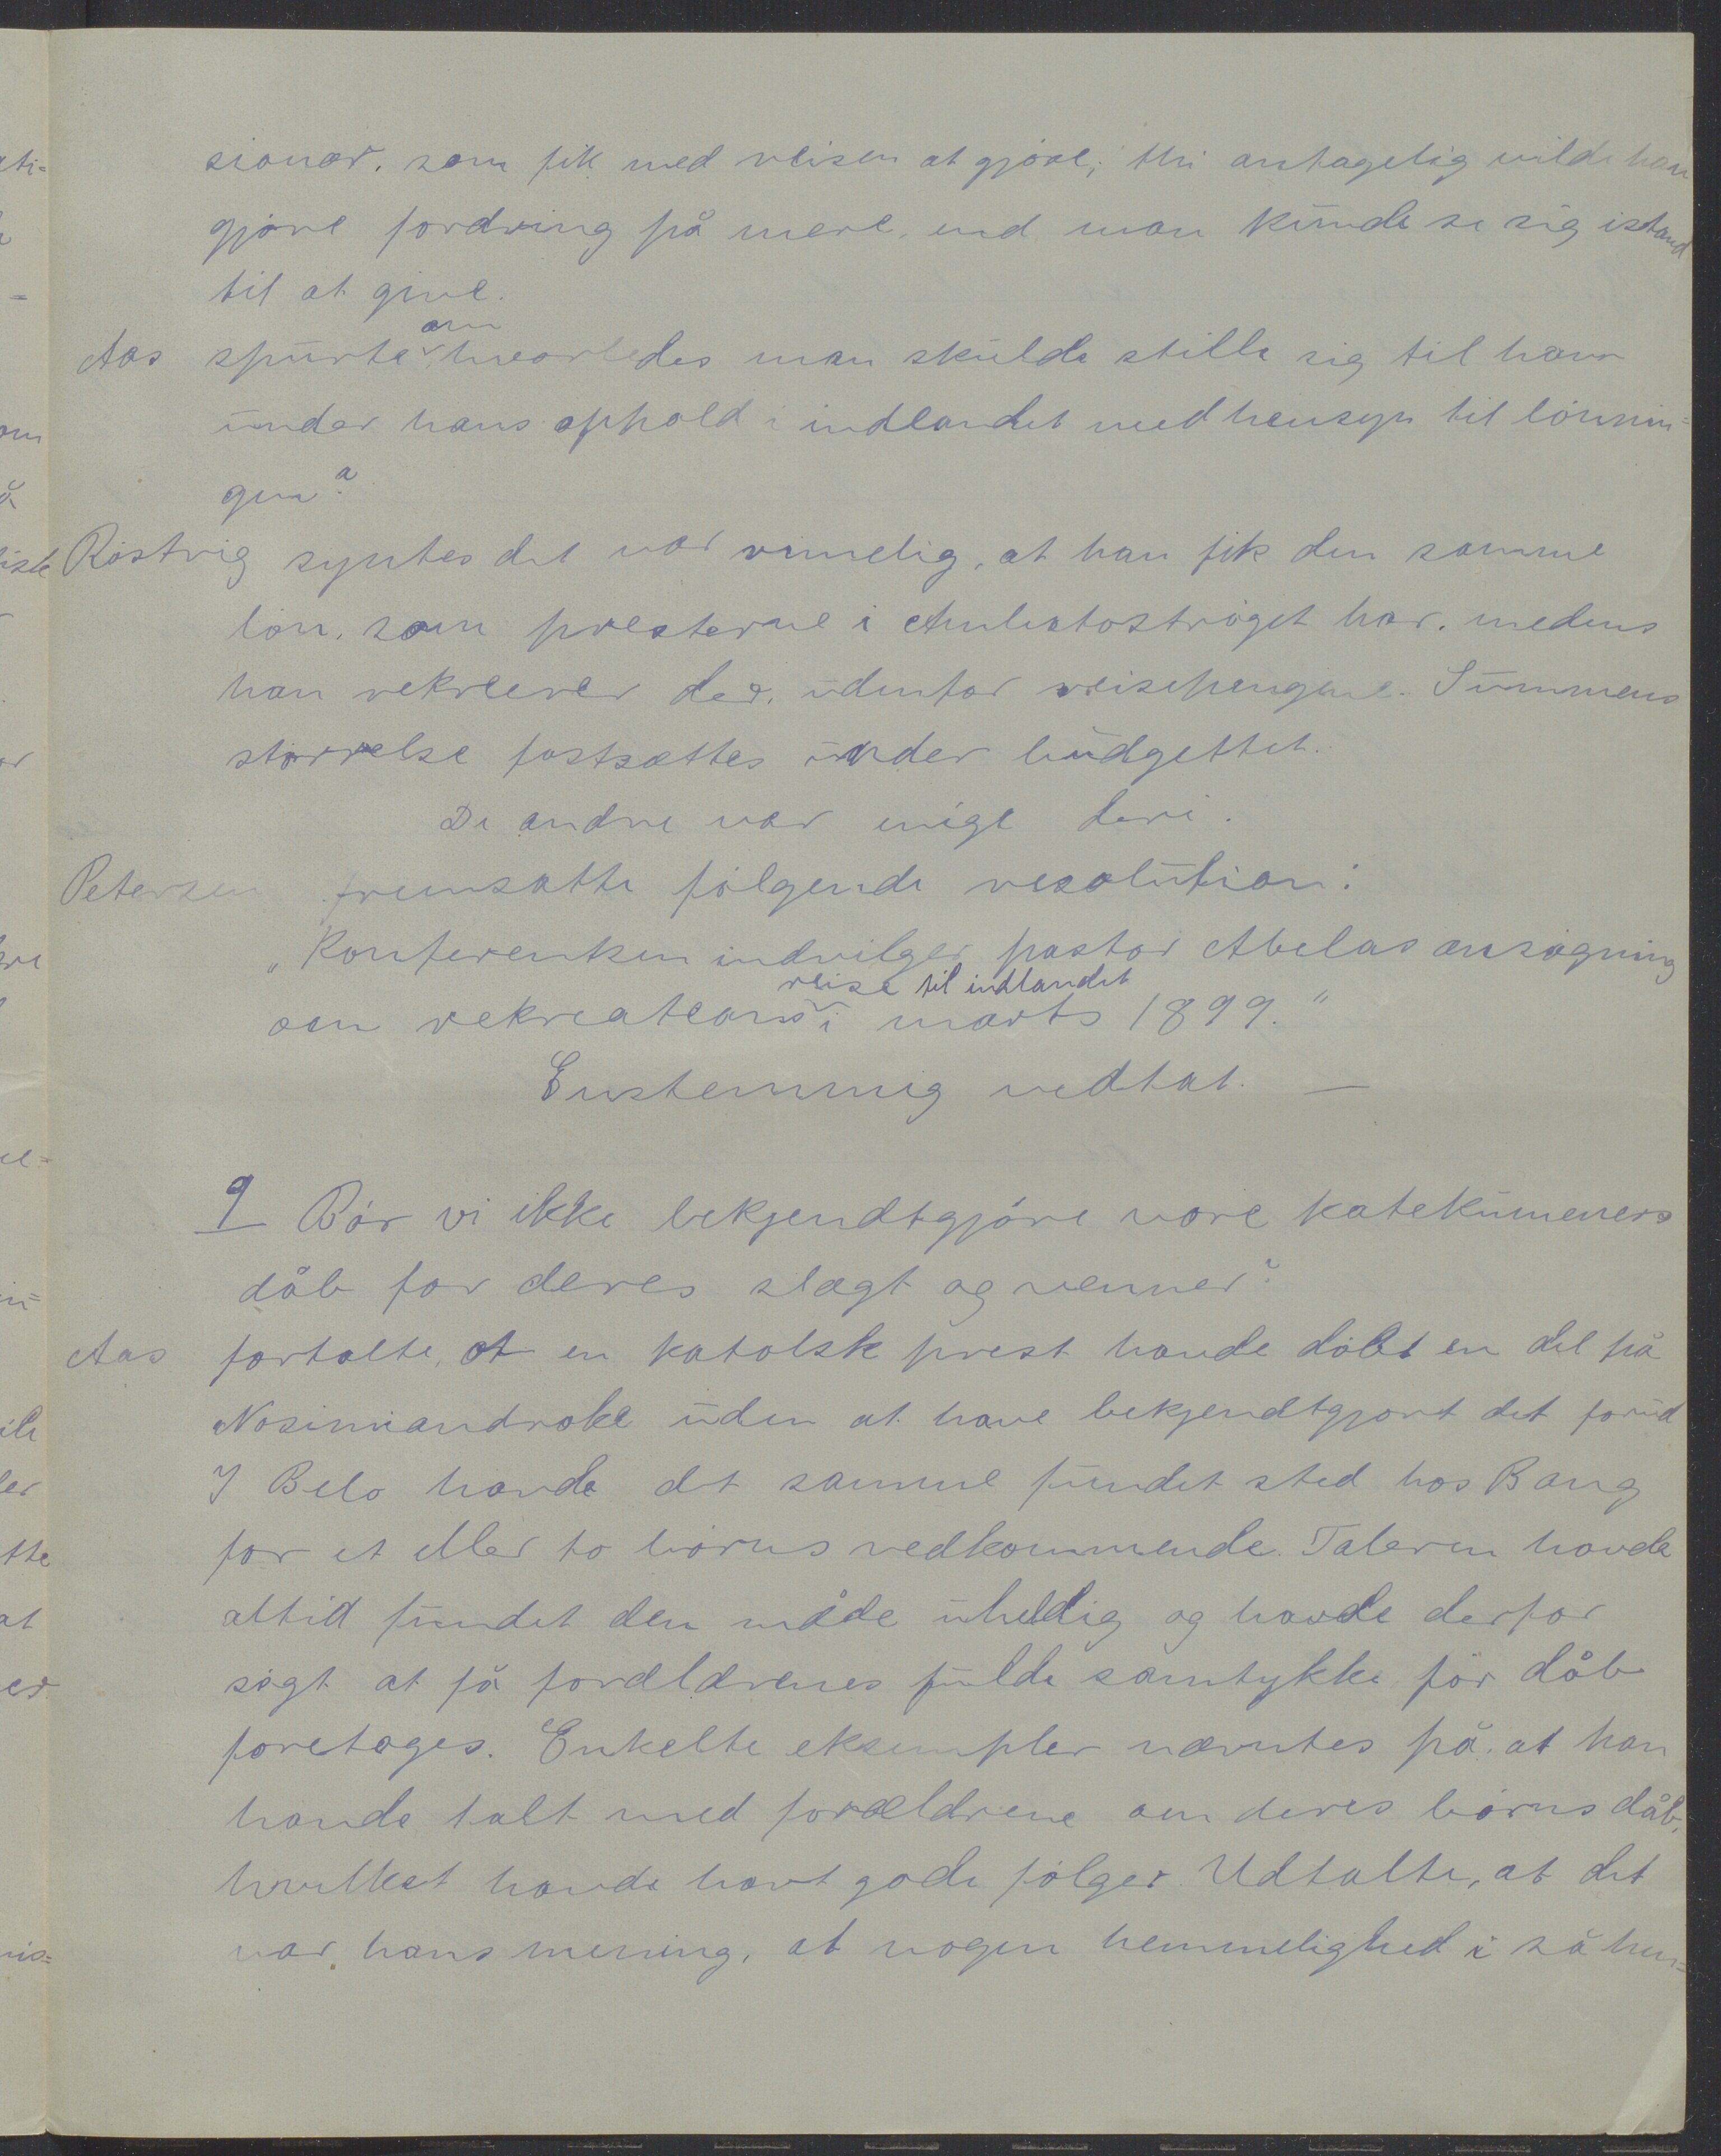 sionær, som fik med reisen at gjøre; thi antagelig vilde han
gjøre fordring på mere, end man kunde se sig istand
til at give.
Aas spurte om hvorledes man skulde stille sig til ham
under hans ophold i indlandet med hensyn til lønnin=
gen?
Röstvig syntes det var rimelig, at han fik den samme
løn, som presterne i Ambatostrøget har, medens
han rekreerer der, udenfor reisepengene. Summens
størrelse fastsættes under budgettet.
De andre var enige deri.
Petersen fremsatte følgende resolution:
„Konferensen indvilger pastor Abelas ansøgning
om rekreations reise til indlandet i marts 1899."
Enstemmig vedtat. —
9 Bør vi ikke bekjendtgjøre vore katekumeners
dåb for deres slægt og venner?
Aas fortalte, at en katolsk prest havde døbt en del på
Nosimiandroke uden at have bekjendtgjort det forud
I Belo havde det samme fundet sted hos Bang
for et eller to børns vedkommende. Taleren havde
altid fundet den måde uheldig og havde derfor
søgt at få forældrenes fulde samtykke før dåb
foretages. Enkelte eksempler nævntes på, at han
havde talt med forældrene om deres børns dåb,
hvilket havde havt gode følger. Udtalte, at det
var hans mening, at nogen hemmelighed i så hen=